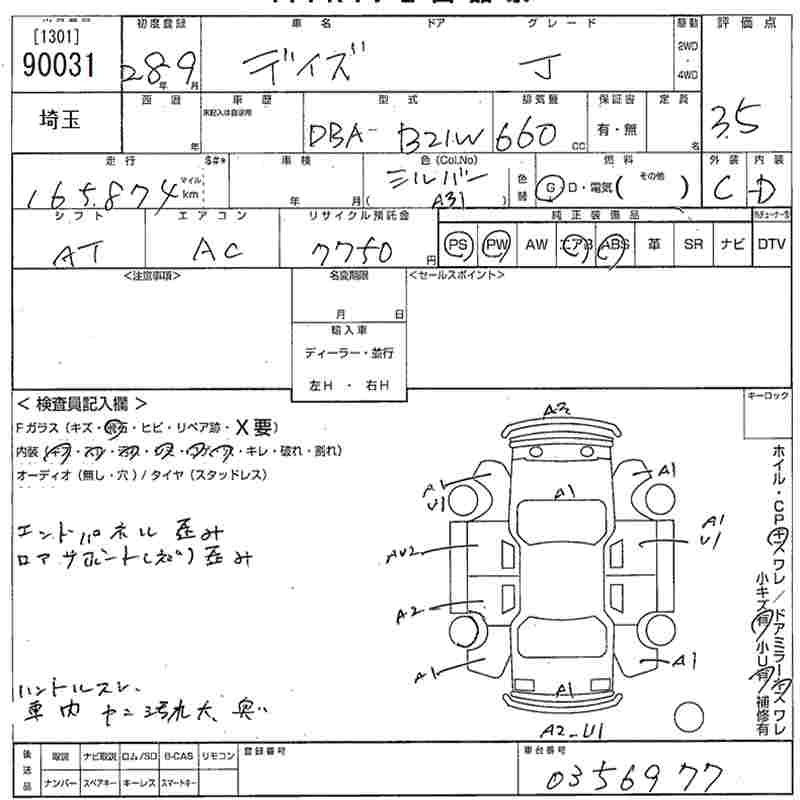 [1301]
90031
初度登録 車名 ドア グレード 駆動 評価点
28年9月 デイズ J 2WD・4WD
3.5
埼玉
西暦 車歴 型式 排気量 保証書 定員
未記入は自家用
年 DBA- B21W 660 CC 有・無 名
走行 $#* 車検 色(Col.No) 色替 燃料 外装 内装
165,874 マイル km 年 月 シルバー ( A31 ) G・D・電気( その他 ) C D
シフト エアコン リサイクル預託金 純正装備品
AT AC 7750円 PS PW AW エアB ABS 革 SR ナビ DTV
<注意事項> 名変期限 <セールスポイント>
月 日
輸入車
ディーラー・並行
左H ・ 右H
< 検査員記入欄 > キーロック
Fガラス(キズ・飛石・ヒビ・リペア跡・X要)
・キレ・破れ・割れ)
オーディオ(無し・穴)/タイヤ(スタッドレス)
エンドパネル 歪み
ロアサポート(ラジ) 歪み
ハンドルスレ、
車内 ヤニ汚れ大、臭い
A2
A1 A1
U1
A1
A1
U1
AU2
A2
A1 A1
A1
A2-U1
ホイル・CPキズワレ/ドアミラーキズワレ
小キズ有 小U有 補修有
後送品 取説 ナビ取説 ロム/SD B-CAS リモコン 登録番号 車台番号
ナンバー スペアキー キーレス スマートキー 0356977